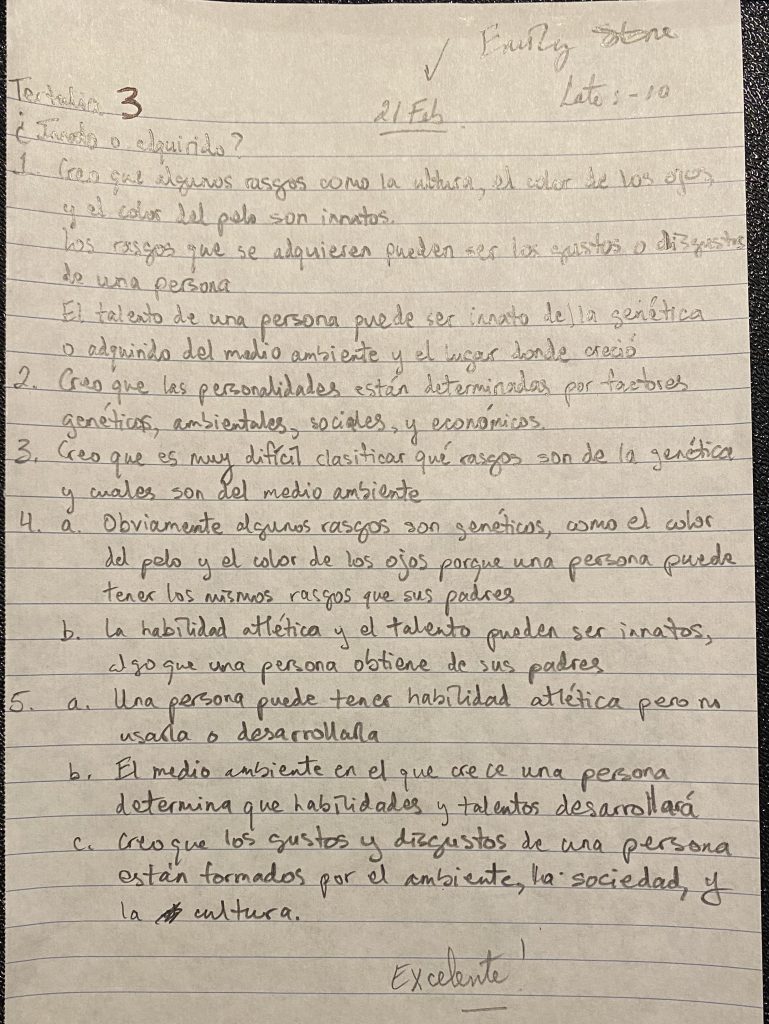 Emily Stone
Late: -10
21 Feb
Tertulia 3
¿Innato o adquirido?
1. Creo que algunos rasgos como la altura, el color de los ojos,
y el color del pelo son innatos.
Los rasgos que se adquieren pueden ser los gustos o disgustos
de una persona
El talento de una persona puede ser innato de la genética
o adquirido del medio ambiente y el lugar donde creció
2. Creo que las personalidades están determinadas por factores
genéticos, ambientales, sociales, y económicos.
3. Creo que es muy difícil clasificar qué rasgos son de la genética
y cuales son del medio ambiente
4. a. Obviamente algunos rasgos son genéticos, como el color
del pelo y el color de los ojos porque una persona puede
tener los mismos rasgos que sus padres
b. La habilidad atlética y el talento pueden ser innatos,
algo que una persona obtiene de sus padres
5. a. Una persona puede tener habilidad atlética pero no
usarla o desarrollarla
b. El medio ambiente en el que crece una persona
determina que habilidades y talentos desarrollará
c. Creo que los gustos y disgustos de una persona
están formados por el ambiente, la sociedad, y
la cultura.
Excelente!